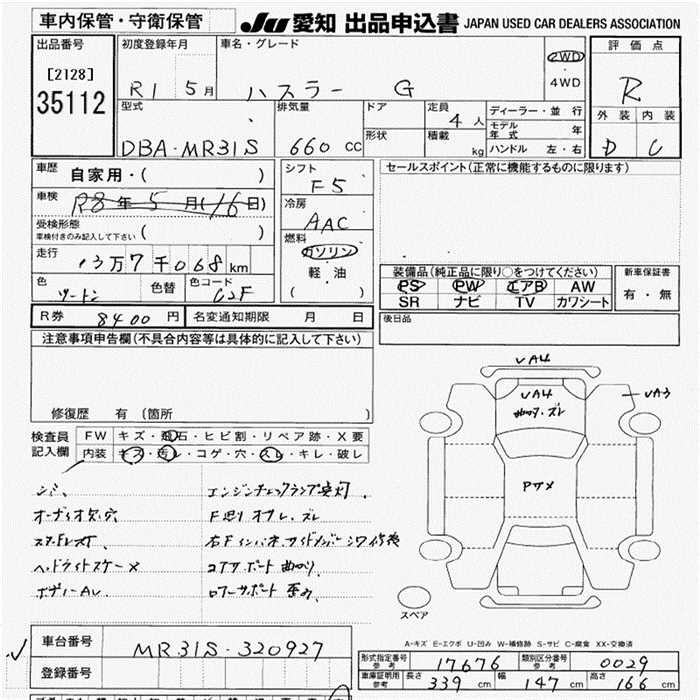 車内保管・守衛保管
JU 愛知 出品申込書 JAPAN USED CAR DEALERS ASSOCIATION
出品番号
[2128]
35112
初度登録年月
R1 5月
車名・グレード
ハスラー G
2WD
・
4WD
評価点
R
外装 内装
D C
型式
DBA-MR31S
排気量
660 cc
ドア
形状
定員
4人
積載
kg
ディーラー・並行
モデル年式 年
ハンドル 左・右
車歴
自家用・( )
車検
R8年5月(16日)
受検形態
車検付きのみ記入して下さい ( )
走行
13万7千068km
色
ツートン
色替
色コード
C2F
シフト
F5
冷房
AAC
燃料
ガソリン
・
軽油
( )
セールスポイント(正常に機能するものに限ります)
装備品(純正品に限り○をつけてください)
PS PW エアB AW
SR ナビ TV カワシート
新車保証書
有・無
R券 8400円
名変通知期限 月 日
後日品
注意事項申告欄(不具合内容等は具体的に記入して下さい)
修復歴 有(箇所 )
検査員
記入欄
FW キズ・飛石・ヒビ割・リペア跡・X要
内装 キズ・汚レ・コゲ・穴・スレ・キレ・破レ
シミ
エンジンチェックランプ点灯
オーディオ欠、穴
F廻り オフレ、ズレ
ヘッドライトスケーメ
コアサポート曲り
ボディーAU
ロアサポート 歪み
UA4
UA4
曲り、ズレ
UA3
Pサメ
スペア
A-キズ E-エクボ U-凹み W-補修跡 S-サビ C-腐食 XX-交換済
車台番号
MR31S-320927
登録番号
形式指定番号
参考
17676
類別区分番号
参考
0029
車庫証明用
参考
長さ
339 cm
幅
147 cm
高さ
166 cm